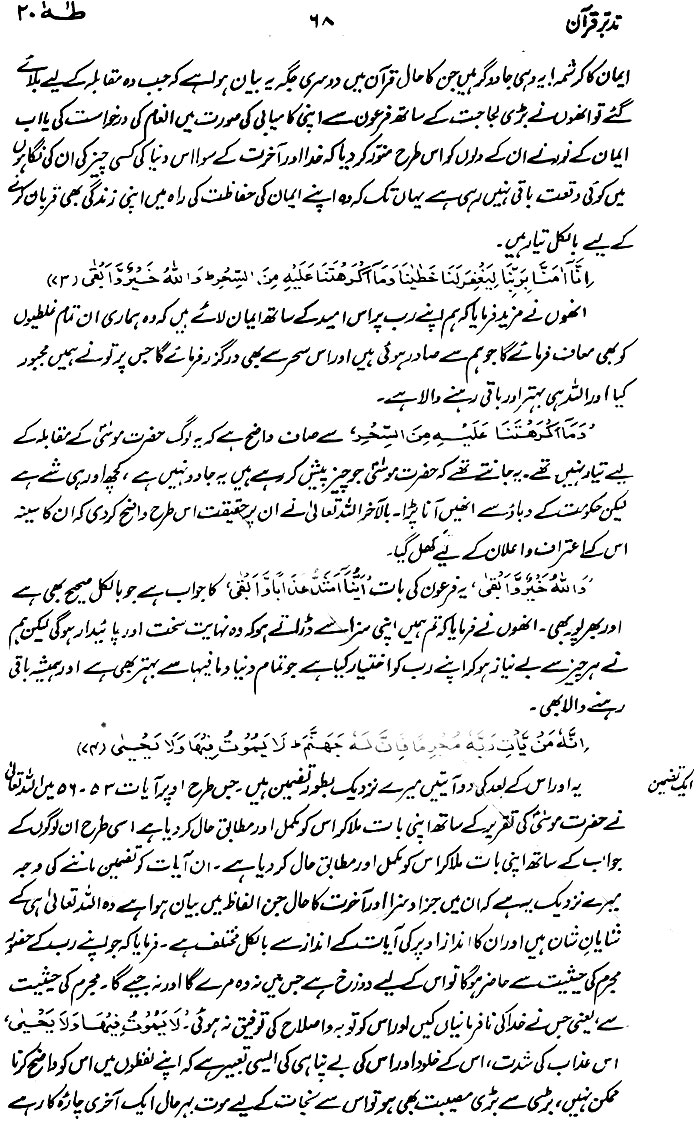 تدبّرِ قرآن ۶۸ طٰهٰ ۲۰
ایمان کا کرشمہ! یہ وہی جادوگر ہیں جن کا حال قرآن میں دوسری جگہ یہ بیان ہوا ہے کہ جب وہ مقابلہ کے لیے بلائے
گئے تو انھوں نے بڑی لجاجت کے ساتھ فرعون سے اپنی کامیابی کی صورت میں انعام کی درخواست کی یا اب
ایمان کے نور نے ان کے دلوں کو اس طرح منوّر کر دیا کہ خدا اور آخرت کے سوا اس دنیا کی کسی چیز کی ان کی نگاہوں
میں کوئی وقعت باقی نہیں رہی ہے یہاں تک کہ وہ اپنے ایمان کی حفاظت کی راہ میں اپنی زندگی بھی قربان کرنے
کے لیے بالکل تیار ہیں۔
اِنَّاۤ اٰمَنَّا بِرَبِّنَا لِيَغْفِرَ لَنَا خَطٰيٰنَا وَمَاۤ اَكْرَهْتَنَا عَلَيْهِ مِنَ السِّحْرِ ط وَاللّٰهُ خَيْرٌ وَّاَبْقٰى (۷۳)
انھوں نے مزید فرمایا کہ ہم اپنے رب پر اس امید کے ساتھ ایمان لائے ہیں کہ وہ ہماری ان تمام غلطیوں
کو بھی معاف فرمائے گا جو ہم سے صادر ہوئی ہیں اور اس سحر سے بھی درگزر فرمائے گا جس پر تو نے ہمیں مجبور
کیا اور اللہ ہی بہتر اور باقی رہنے والا ہے۔
’وَمَاۤ اَكْرَهْتَنَا عَلَيْهِ مِنَ السِّحْرِ‘ سے صاف واضح ہے کہ یہ لوگ حضرت موسیٰؑ کے مقابلہ کے
لیے تیار نہیں تھے۔ یہ جانتے تھے کہ حضرت موسیٰؑ جو چیز پیش کر رہے ہیں یہ جادو نہیں ہے، کچھ اور ہی شے ہے
لیکن حکومت کے دباؤ سے انھیں آنا پڑا۔ بالآخر اللہ تعالیٰ نے ان پر حقیقت اس طرح واضح کر دی کہ ان کا سینہ
اس کے اعتراف و اعلان کے لیے کھل گیا۔
’وَاللّٰهُ خَيْرٌ وَّاَبْقٰى‘، یہ فرعون کی بات ’اَيُّنَاۤ اَشَدُّ عَذَابًا وَّاَبْقٰى‘ کا جواب ہے جو بالکل صحیح بھی ہے
اور بھرپور بھی۔ انھوں نے فرمایا کہ تم ہمیں اپنی سزا سے ڈراتے ہو کہ وہ نہایت سخت اور پائیدار ہوگی لیکن ہم
نے ہر چیز سے بے نیاز ہو کر اپنے رب کو اختیار کیا ہے جو تمام دنیا و مافیہا سے بہتر بھی ہے اور ہمیشہ باقی
رہنے والا بھی۔
اِنَّهٗ مَنْ يَّاْتِ رَبَّهٗ مُجْرِمًا فَاِنَّ لَهٗ جَهَنَّمَ ط لَا يَمُوْتُ فِيْهَا وَلَا يَحْيٰى (۷۴)
ایک تضمین
یہ اور اس کے بعد کی دو آیتیں میرے نزدیک بطور تضمین ہیں۔ جس طرح اوپر آیات ۵۳-۵۶ میں اللہ تعالیٰ
نے حضرت موسیٰؑ کی تقریر کے ساتھ اپنی بات ملا کر اس کو مکمل اور مطابق حال کر دیا ہے اسی طرح ان لوگوں کے
جواب کے ساتھ اپنی بات ملا کر اس کو مکمل اور مطابق حال کر دیا ہے۔ ان آیات کو تضمین ماننے کی وجہ
میرے نزدیک یہ ہے کہ ان میں جزا و سزا اور آخرت کا حال جن الفاظ میں بیان ہوا ہے وہ اللہ تعالیٰ ہی کے
شایانِ شان ہیں اور ان کا انداز اوپر کی آیات کے انداز سے بالکل مختلف ہے۔ فرمایا کہ جو اپنے رب کے حضور
مجرم کی حیثیت سے حاضر ہوگا تو اس کے لیے دوزخ ہے جس میں نہ وہ مرے گا اور نہ جیے گا۔ مجرم کی حیثیت
سے، یعنی جس نے خدا کی نافرمانیاں کیں اور اس کو توبہ و اصلاح کی توفیق نہ ہوئی۔ ’لَا يَمُوْتُ فِيْهَا وَلَا يَحْيٰى‘،
اس عذاب کی شدت، اس کے خلود اور اس کی بے پناہی کی ایسی تعبیر ہے کہ اپنے لفظوں میں اس کو واضح کرنا
ممکن نہیں، بڑی سے بڑی مصیبت بھی ہو تو اس سے نجات کے لیے موت بہرحال ایک آخری چارۂ کار ہے